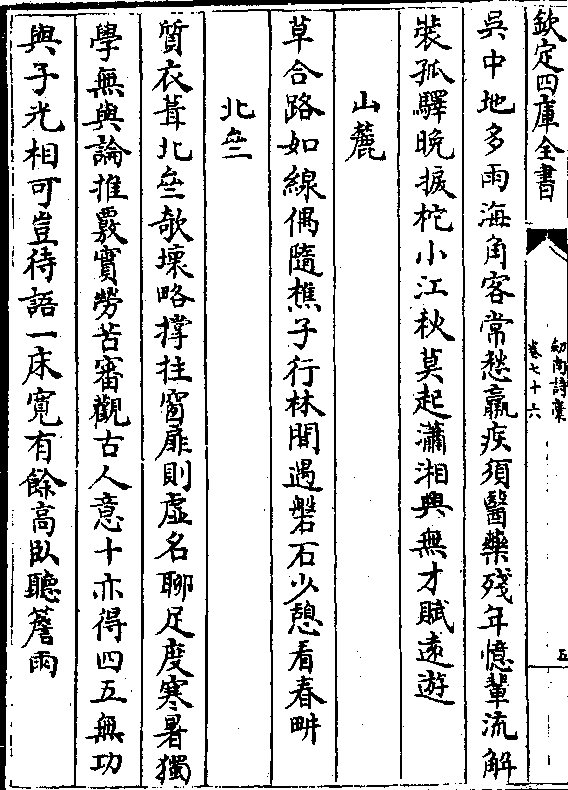 欽定四庫全書
劍南詩稾
卷七十六
五
吳中地多雨海角客常愁羸疾須醫藥殘年憶輩流解
裝孤驛晚捩柁小江秋莫起瀟湘興無才賦遠遊
山麓
草合路如線偶隨樵子行林間遇磐石少憩看春畊
北亝
質衣葺北亝欹壞略撐拄窗扉則虛名聊足度寒暑獨
學無與論推覈實勞苦審觀古人意十亦得四五無功
與子光相可豈待語一床寬有餘高臥聽簷雨